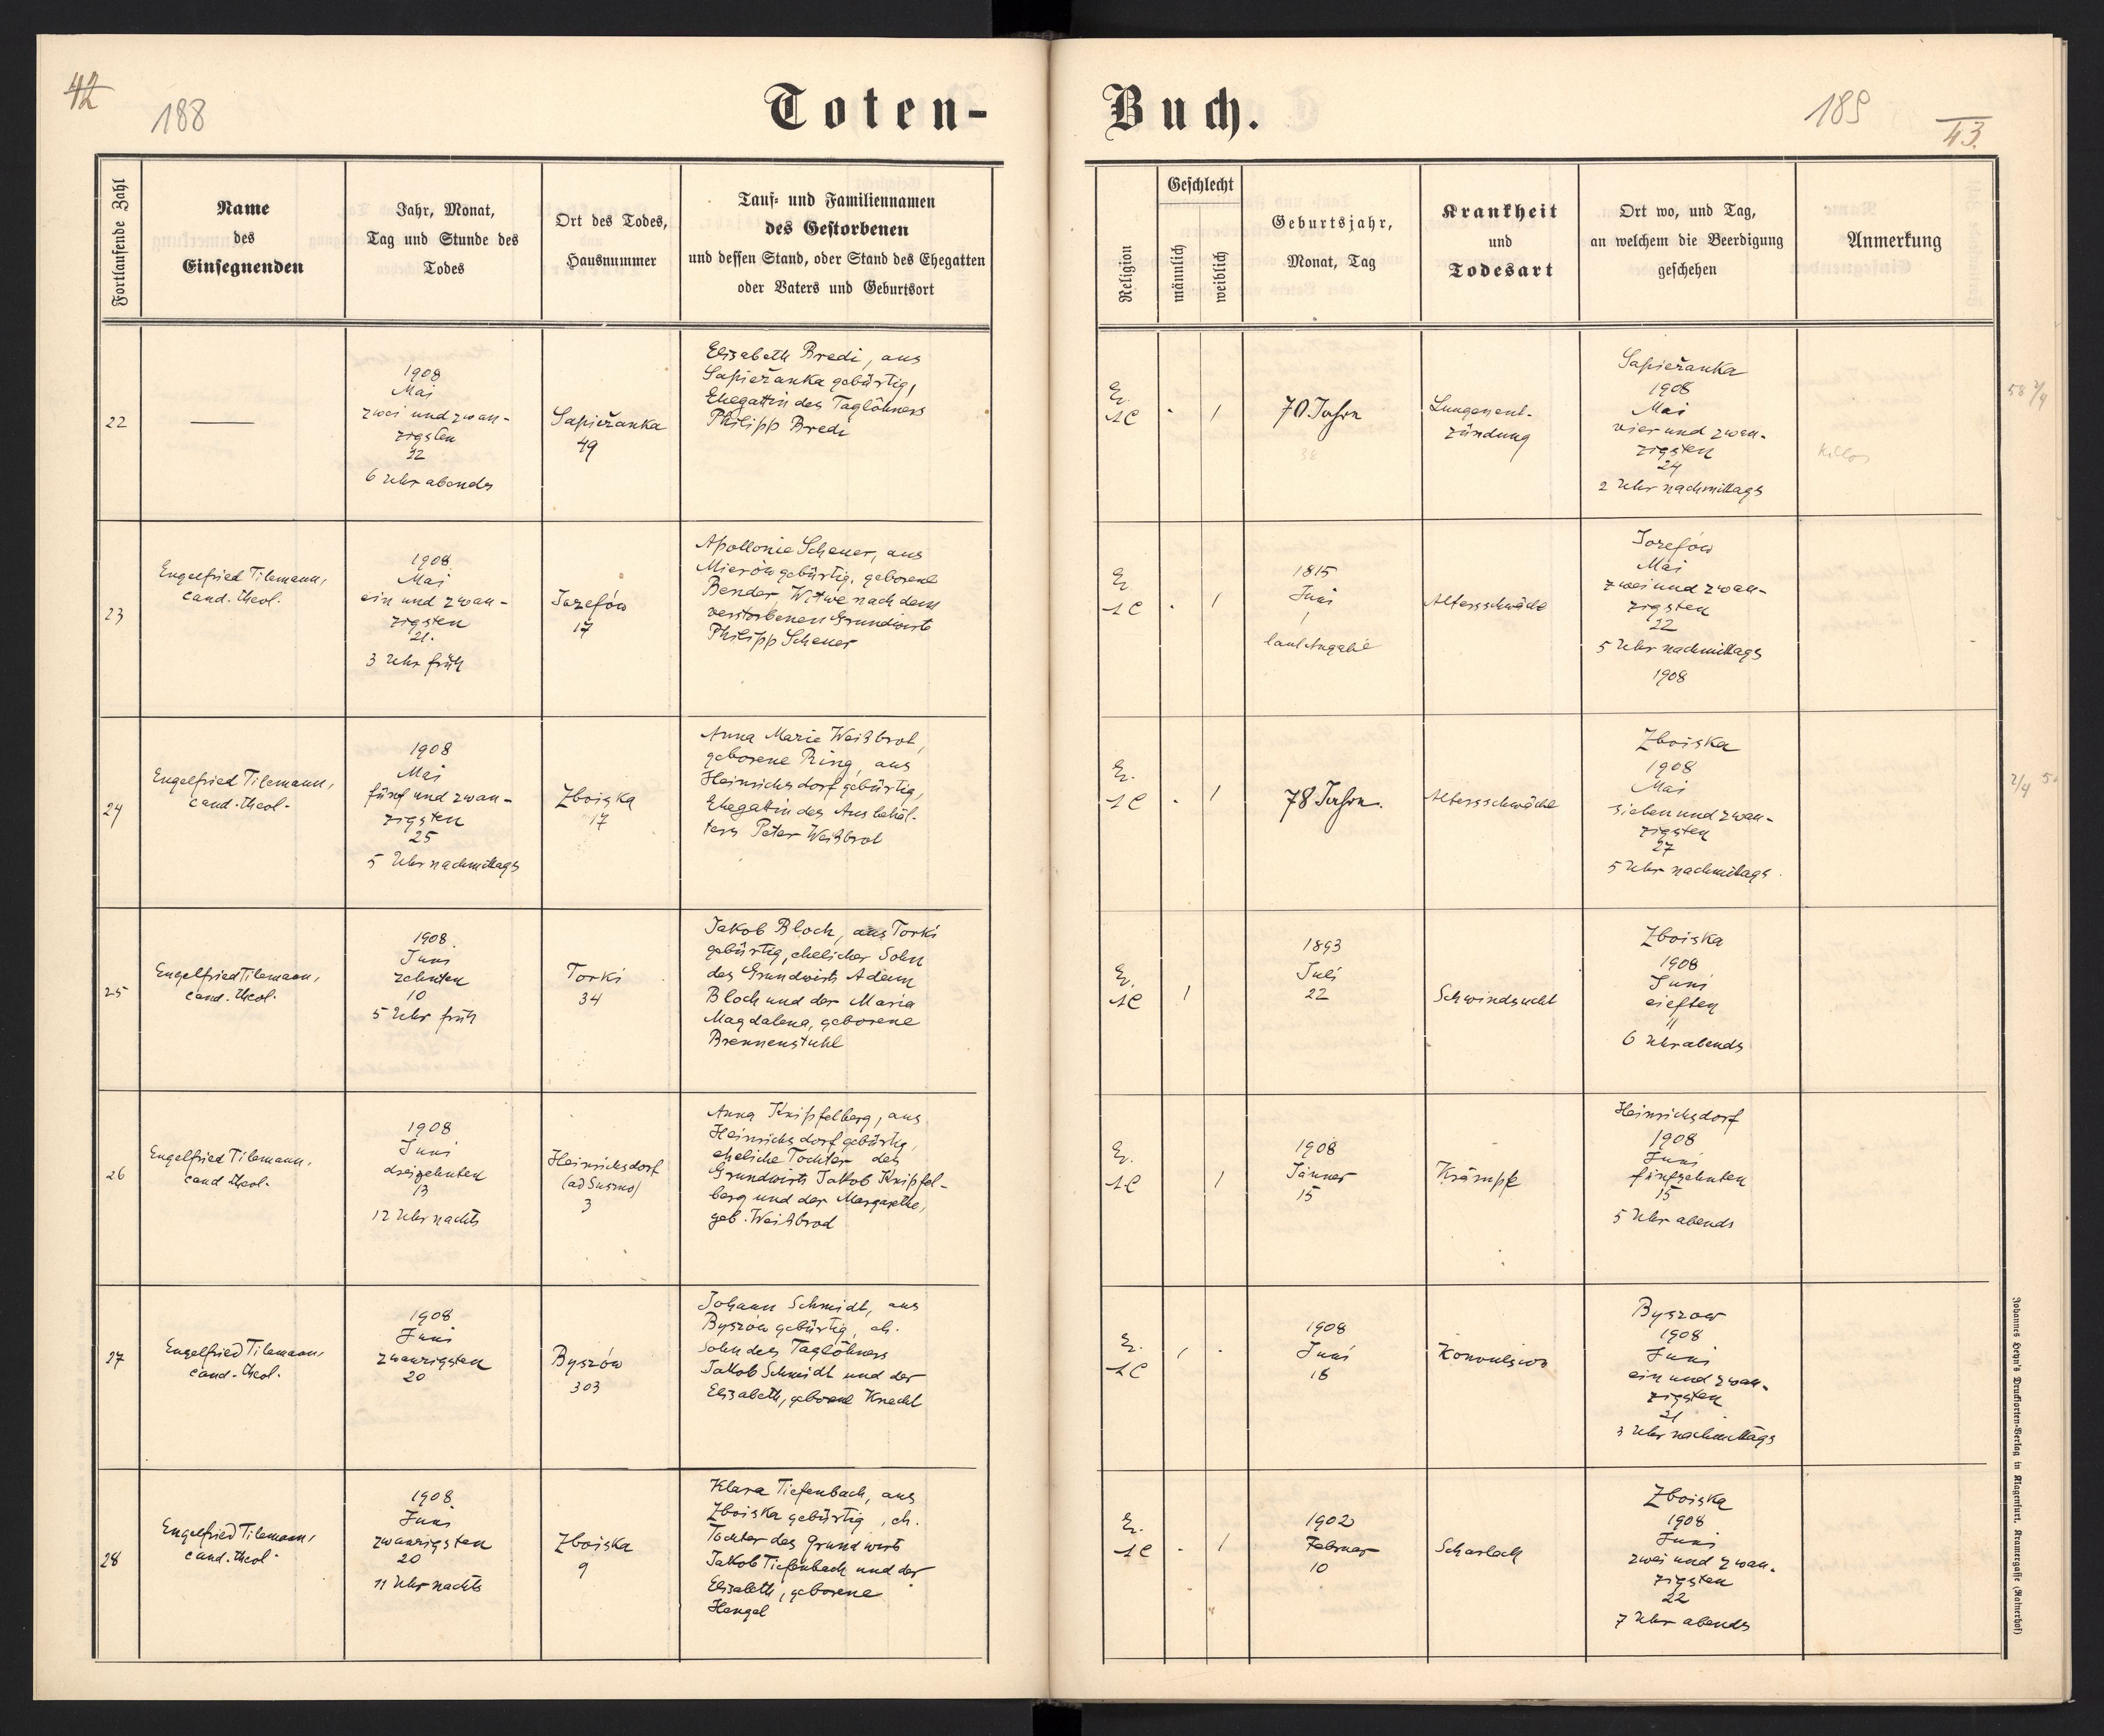 42
188
Toten-
Fortlaufende Zahl
Name
des
Einsegnenden
Jahr, Monat,
Tag und Stunde des
Todes
Ort des Todes,
Hausnummer
Tauf- und Familiennamen
des Gestorbenen
und dessen Stand, oder Stand des Ehegatten
oder Vaters und Geburtsort
22
1908
Mai
zwei und zwan-
zigsten
22
6 Uhr abends
Sapieżanka
49
Elisabeth Bredi, aus
Sapieżanka gebürtig,
Ehegattin des Taglöhners
Philipp Bredi
23
Engelfried Tilemann,
cand. theol.
1908
Mai
ein und zwan-
zigsten
21.
3 Uhr früh
Jozefów
17
Apollonie Scheuer, aus
Mierów gebürtig, geborene
Bender, Witwe nach dem
verstorbenen Grundwirte
Philipp Scheuer
24
Engelfried Tilemann,
cand. theol.
1908
Mai
fünf und zwan-
zigsten
25
5 Uhr nachmittags
Zboiska
17
Anna Marie Weißbrot,
geborene Ring, aus
Heinrichsdorf gebürtig,
Ehegattin des Ausbehäl-
ters Peter Weißbrot
25
Engelfried Tilemann,
cand. theol.
1908.
Juni
zehnten
10
5 Uhr früh
Torki
34
Jakob Bloch, aus Torki
gebürtig, ehelicher Sohn
des Grundwirts Adam
Bloch und der Maria
Magdalena, geborene
Brennenstuhl
26
Engelfried Tilemann,
cand theol.
1908
Juni
dreizehnten
13
12 Uhr nachts
Heinrichsdorf
(ad Suszno)
3
Anna Knipfelberg, aus
Heinrichsdorf gebürtig,
eheliche Tochter des
Grundwirts Jakob Knipfel-
berg und der Margarethe,
geb. Weißbrod
27
Engelfried Tilemann,
cand. theol.
1908
Juni
zwanzigsten
20
Byszów
303
Johann Schmidt, aus
Byszów gebürtig, eh.
Sohn des Taglöhners
Jakob Schmidt und der
Elisabeth, geborene Knecht
28
Engelfried Tilemann,
cand. theol.
1908.
Juni
zwanzigsten
20
11 Uhr nachts
Zboiska
9
Klara Tiefenbach, aus
Zboiska gebürtig, eh.
Tochter des Grundwirts
Jakob Tiefenbach und der
Elisabeth, geborene
Hengel
Buch.
189
43.
Religion
Geschlecht
männlich
weiblich
Geburtsjahr,
Monat, Tag
Krankheit
und
Todesart
Ort wo, und Tag,
an welchem die Beerdigung
geschehen
Anmerkung
Ev.
AC
-
1
70 Jahre
38
Lungenent-
zündung
Sapieżanka
1908
Mai
vier und zwan-
zigsten
24
2 Uhr nachmittags
Ev
AC
-
1
1815
Juni
1
laut Angabe
Altersschwäche
Jozefów
Mai
zwei und zwan-
zigsten
22
5 Uhr nachmittags
1908
Ev.
AC
-
1
78 Jahre.
Altersschwäche
Zboiska
1908
Mai
sieben und zwan-
zigsten
27
5 Uhr nachmittags.
Ev.
AC
1
1893
Juli
22
Schwindsucht
Zboiska
1908
Juni
elften
11
6 Uhr abends
Ev.
AC
1
1908
Jänner
15
Krämpfe
Heinrichsdorf
1908
Juni
fünfzehnten
15
5 Uhr abends
Ev.
AC
1
-
1908
Juni
16
Konvulsion
Byszow
1908
Juni
ein und zwan-
zigsten
21
3 Uhr nachmittags
Ev.
AC
-
1
1902
Februar
10
Scharlach
Zboiska
1908
Juni
zwei und zwan-
zigsten
22
7 Uhr abends
Johannes Heyn's Drucksorten-Verlag in Klagenfurt, Kramergasse (Rainerhof)